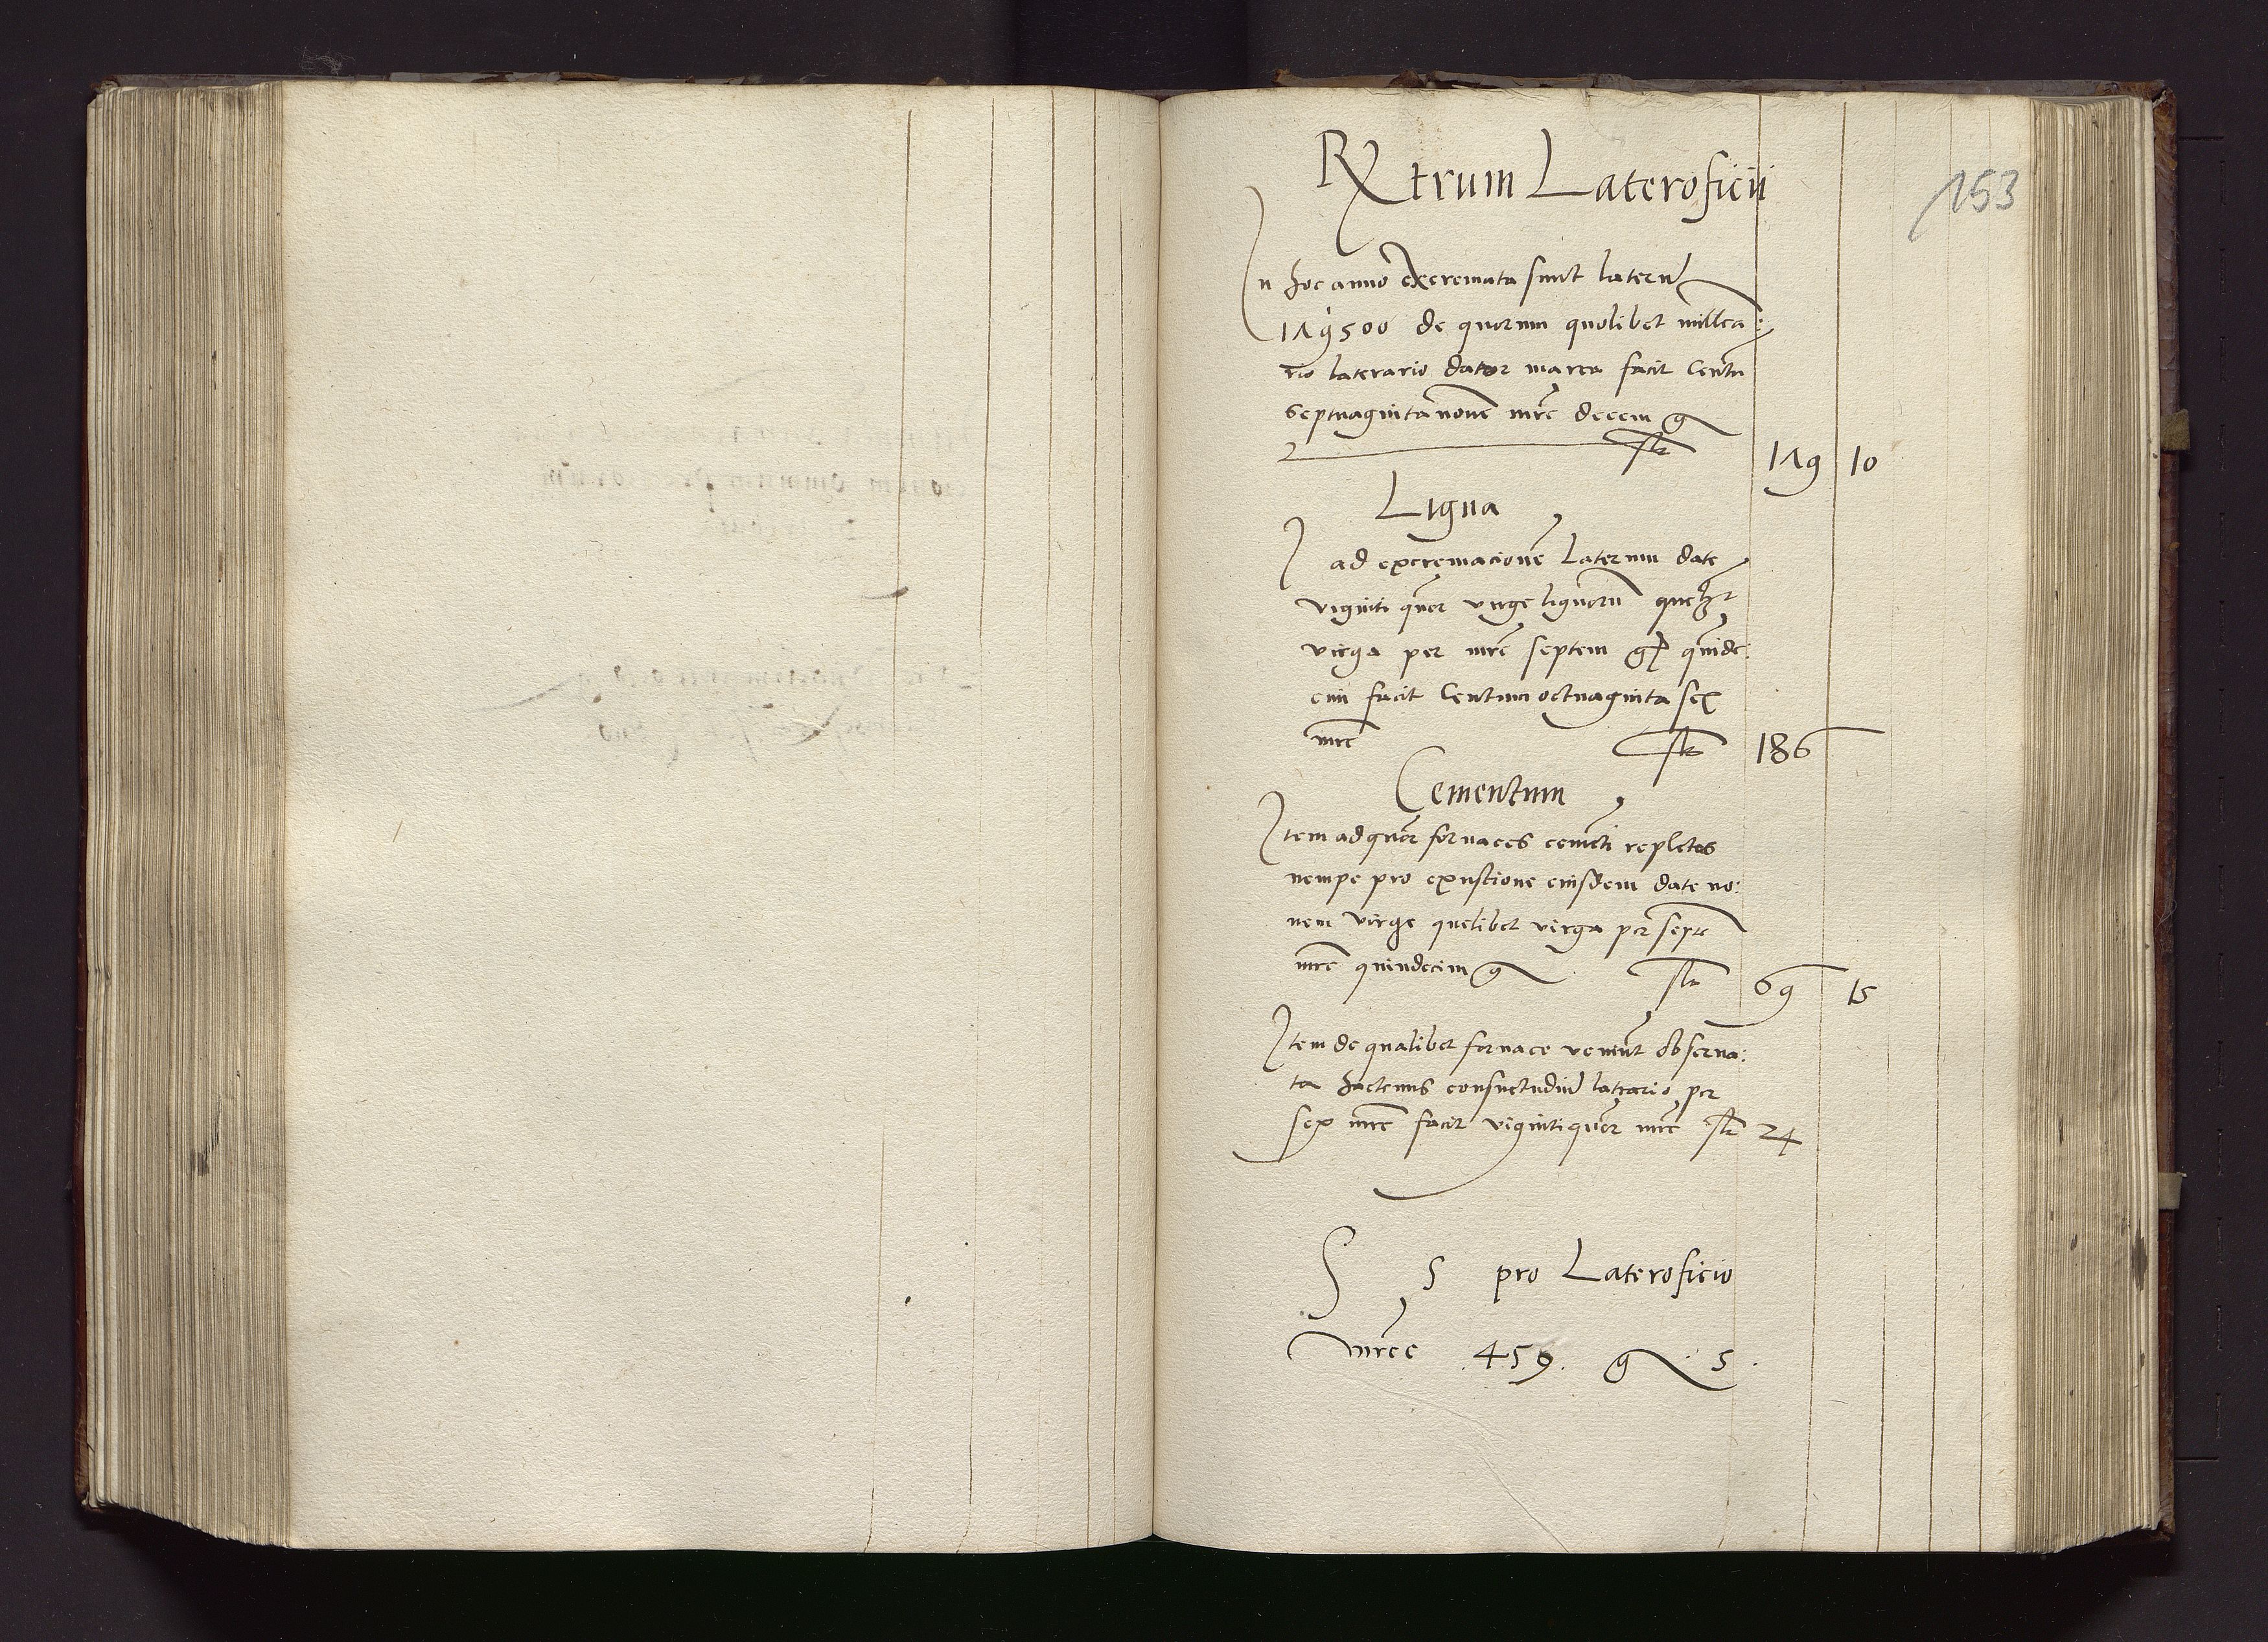 Rtrum Lateroficii
153
In hoc anno excremata sunt laterū
179500 de quorum quolibet millena:
rio laterario dator marca facit Centū
septuagintanovē mrc decem g
179 10
Ligna
ad excremacionē laterum date
viginti quor virge lignorū
virga per mrc septem g quinde:
cim facit Centum octuaginta sex
mrc
186
Cementum
Item ad quor fornaces cemēti repletas
nempe pro exustione eiusdem date no:
nem virge quelibet virga per septē
mrc quindecim g
69 15
Item de qualibet fornace veniūt observa:
ta hactenus consuetudine latrario per
sex mrc facit viginti quor mrc 24
S s pro Lateroficio
mrce .459. g 5.